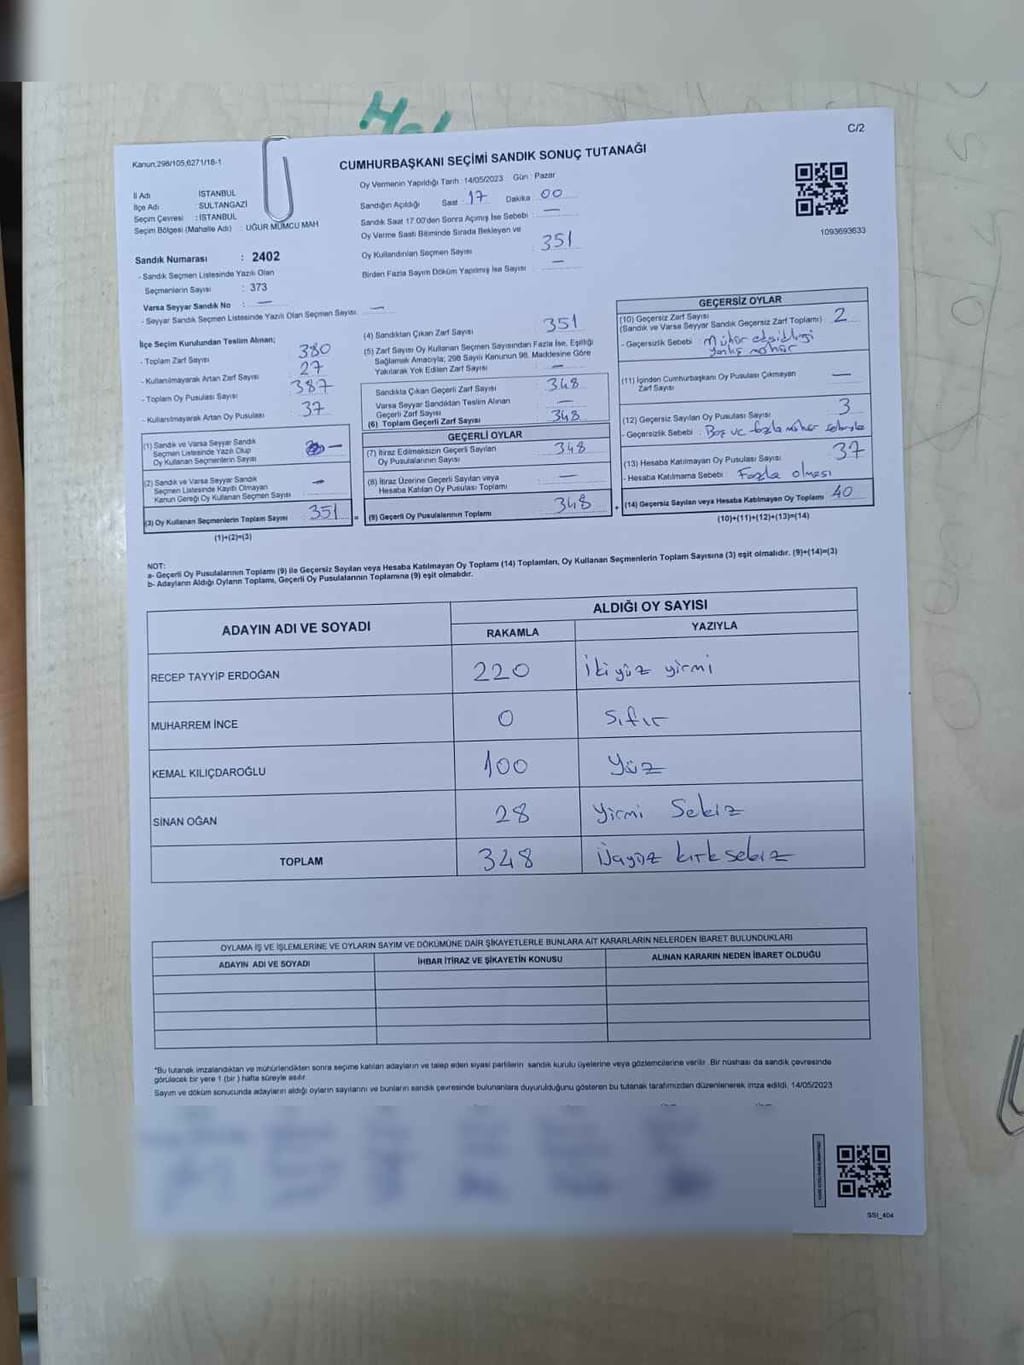 Hal
C/2
Kanun,298/105,6271/18-1
CUMHURBAŞKANI SEÇİMİ SANDIK SONUÇ TUTANAĞI
İl Adı : İSTANBUL
İlçe Adı : SULTANGAZİ
Seçim Çevresi : İSTANBUL
Seçim Bölgesi (Mahalle Adı) : UĞUR MUMCU MAH
Oy Vermenin Yapıldığı Tarih : 14/05/2023 Gün : Pazar
Sandığın Açıldığı Saat : 17 Dakika 00
Sandık Saat 17:00'den Sonra Açımış İse Sebebi : —
Oy Verme Saati Bitiminde Sırada Bekleyen ve
Oy Kullandırılan Seçmen Sayısı 351
Birden Fazla Sayım Döküm Yapılmış İse Sayısı —
1093693633
Sandık Numarası : 2402
- Sandık Seçmen Listesinde Yazılı Olan
Seçmenlerin Sayısı : 373
Varsa Seyyar Sandık No : —
- Seyyar Sandık Seçmen Listesinde Yazılı Olan Seçmen Sayısı : —
İlçe Seçim Kurulundan Teslim Alınan;
- Toplam Zarf Sayısı 380
- Kullanılmayarak Artan Zarf Sayısı 27
- Toplam Oy Pusulası Sayısı 387
- Kullanılmayarak Artan Oy Pusulası 37
(1) Sandık ve Varsa Seyyar Sandık
Seçmen Listesinde Yazılı Olup
Oy Kullanan Seçmenlerin Sayısı —
(2) Sandık ve Varsa Seyyar Sandık
Seçmen Listesinde Kayıtlı Olmayan
Kanun Gereği Oy Kullanan Seçmen Sayısı —
(3) Oy Kullanan Seçmenlerin Toplam Sayısı 351
(1)+(2)=(3)
(4) Sandıktan Çıkan Zarf Sayısı 351
(5) Zarf Sayısı Oy Kullanan Seçmen Sayısından Fazla İse, Eşitliği
Sağlamak Amacıyla; 298 Sayılı Kanunun 98. Maddesine Göre
Yakılarak Yok Edilen Zarf Sayısı —
Sandıkta Çıkan Geçerli Zarf Sayısı 348
Varsa Seyyar Sandıktan Teslim Alınan
Geçerli Zarf Sayısı —
(6) Toplam Geçerli Zarf Sayısı 348
GEÇERLİ OYLAR
(7) İtiraz Edilmeksizin Geçerli Sayılan
Oy Pusulalarının Sayısı 348
(8) İtiraz Üzerine Geçerli Sayılan veya
Hesaba Katılan Oy Pusulası Toplamı —
(9) Geçerli Oy Pusulalarının Toplamı 348
GEÇERSİZ OYLAR
(10) Geçersiz Zarf Sayısı
(Sandık ve Varsa Seyyar Sandık Geçersiz Zarf Toplamı) 2
- Geçersizlik Sebebi : Mühür eksikliği
yanlış mühür
(11) İçinden Cumhurbaşkanı Oy Pusulası Çıkmayan
Zarf Sayısı —
(12) Geçersiz Sayılan Oy Pusulası Sayısı 3
- Geçersizlik Sebebi : Boş ve fazla mühür sebebiyle
(13) Hesaba Katılmayan Oy Pusulası Sayısı 37
- Hesaba Katılmama Sebebi : Fazla olması
(14) Geçersiz Sayılan veya Hesaba Katılmayan Oy Toplamı 40
(10)+(11)+(12)+(13)=(14)
NOT:
a- Geçerli Oy Pusulalarının Toplamı (9) ile Geçersiz Sayılan veya Hesaba Katılmayan Oy Toplamı (14) Toplamları, Oy Kullanan Seçmenlerin Toplam Sayısına (3) eşit olmalıdır. (9)+(14)=(3)
b- Adayların Aldığı Oyların Toplamı, Geçerli Oy Pusulalarının Toplamına (9) eşit olmalıdır.
ADAYIN ADI VE SOYADI ALDIĞI OY SAYISI
RAKAMLA YAZIYLA
RECEP TAYYİP ERDOĞAN 220 İkiyüz yirmi
MUHARREM İNCE 0 Sıfır
KEMAL KILIÇDAROĞLU 100 Yüz
SİNAN OĞAN 28 Yirmi Sekiz
TOPLAM 348 Üçyüz kırksekiz
OYLAMA İŞ VE İŞLEMLERİNE VE OYLARIN SAYIM VE DÖKÜMÜNE DAİR ŞİKAYETLERLE BUNLARA AİT KARARLARIN NELERDEN İBARET BULUNDUKLARI
ADAYIN ADI VE SOYADI İHBAR İTİRAZ VE ŞİKAYETİN KONUSU ALINAN KARARIN NEDEN İBARET OLDUĞU
*Bu tutanak imzalandıktan ve mühürlendikten sonra seçime katılan adayların ve talep eden siyasi partilerin sandık kurulu üyelerine veya gözlemcilerine verilir. Bir nüshası da sandık çevresinde
görülecek bir yere 1 (bir) hafta süreyle asılır.
Sayım ve döküm sonucunda adayların aldığı oyların sayılarını ve bunların sandık çevresinde bulunanlara duyurulduğunu gösteren bu tutanak tarafımızdan düzenlenerek imza edildi. 14/05/2023
SSI_404